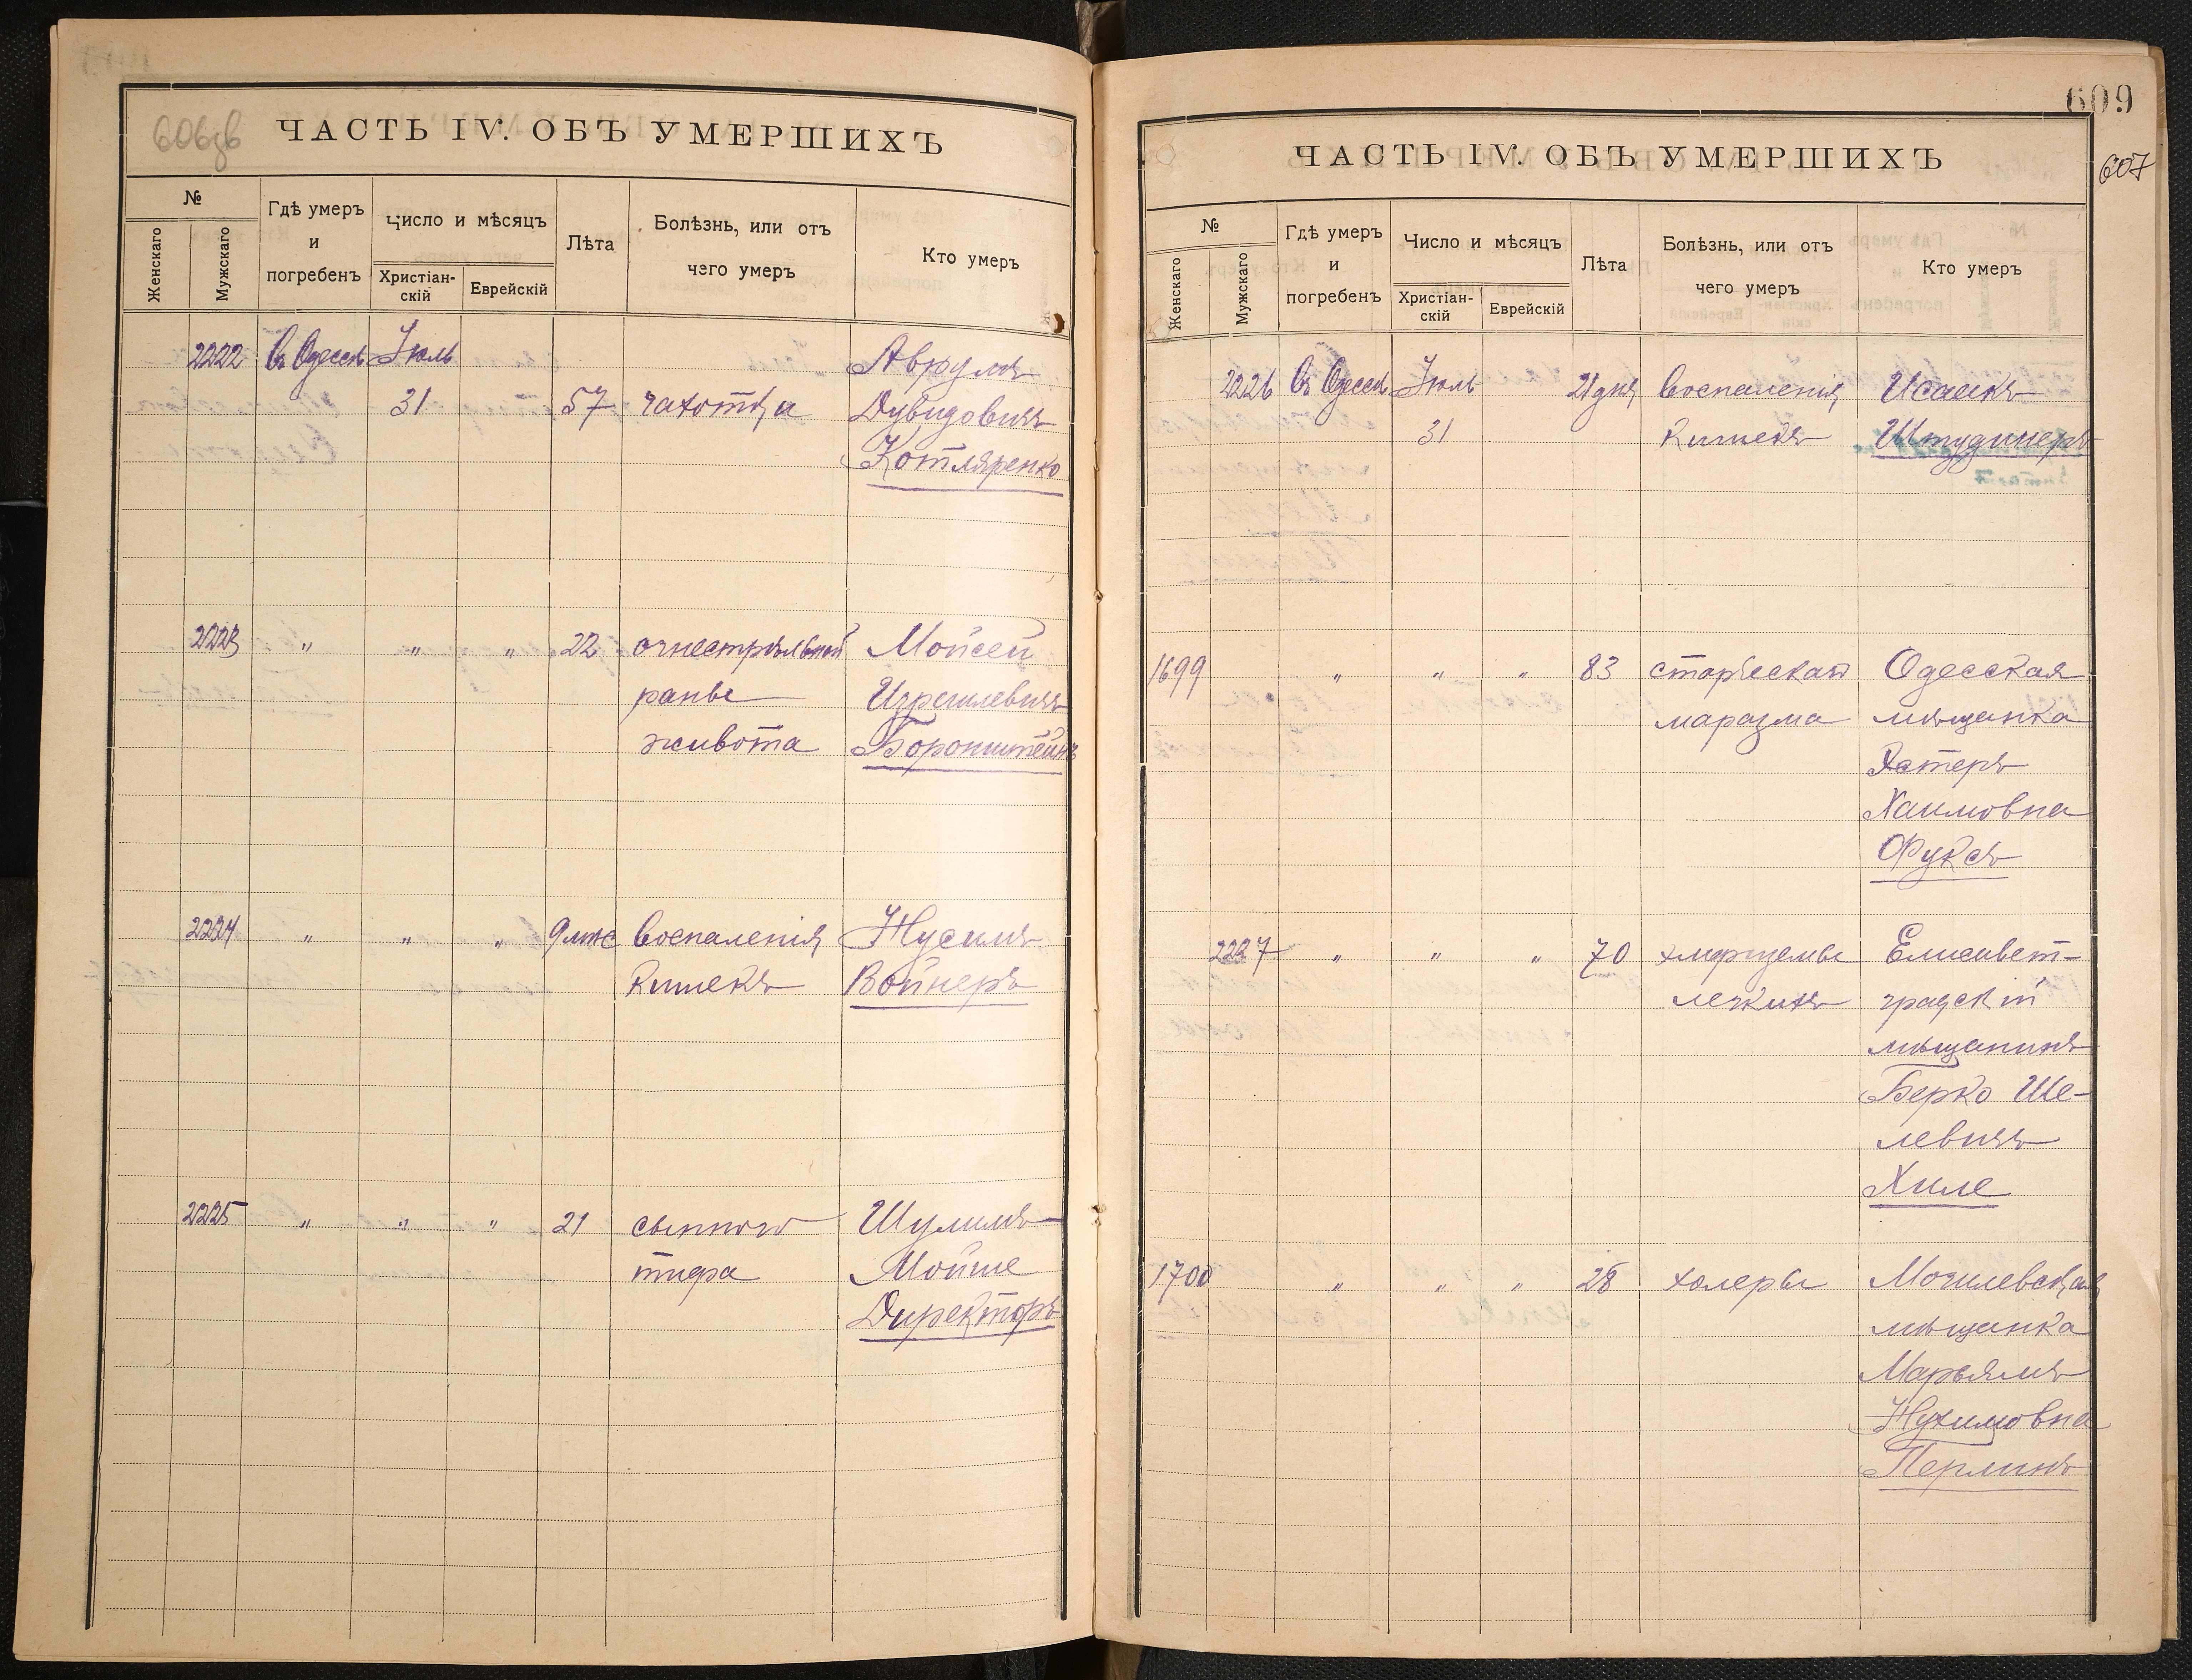 606об
ЧАСТЬ IV. ОБЪ УМЕРШИХЪ
№
Женскаго
Мужскаго
Гдѣ умеръ
и
погребенъ
Число и мѣсяцъ
Христіан-
скій
Еврейскій
Лѣта
Болѣзнь, или отъ
чего умеръ
Кто умеръ
2222 Въ Одессѣ Іюль Аврумъ
31 57 чахотка Дувидовичъ
Котляренко
2223 " " " 22 огнестрѣльной Мойсей
раны Израилевичъ
живота Боронштейнъ
2224 " " " 9 мѣс воспаленія Нусимъ
кишекъ Войнеръ
2225 " " " 21 сыпного Шулимъ
тифа Мойше
Директоръ
609
607
ЧАСТЬ IV. ОБЪ УМЕРШИХЪ
№
Женскаго
Мужскаго
Гдѣ умеръ
и
погребенъ
Число и мѣсяцъ
Христіан-
скій
Еврейскій
Лѣта
Болѣзнь, или отъ
чего умеръ
Кто умеръ
2226 Въ Одессѣ Іюль 21 дня воспаленія Исаакъ
31 кишекъ Штудинеръ
1699 " " " 83 старческая Одесская
маразма мѣщанка
Эстеръ
Хаимовна
Фуксъ
2227 " " " 70 эмфиземы Елисавет-
легкихъ градскій
мѣщанинъ
Берко Ше-
левичъ
Хиле
1700 " " " 28 холеры Могилевская
мѣщанка
Марьямъ
Нухимовна
Перлинъ